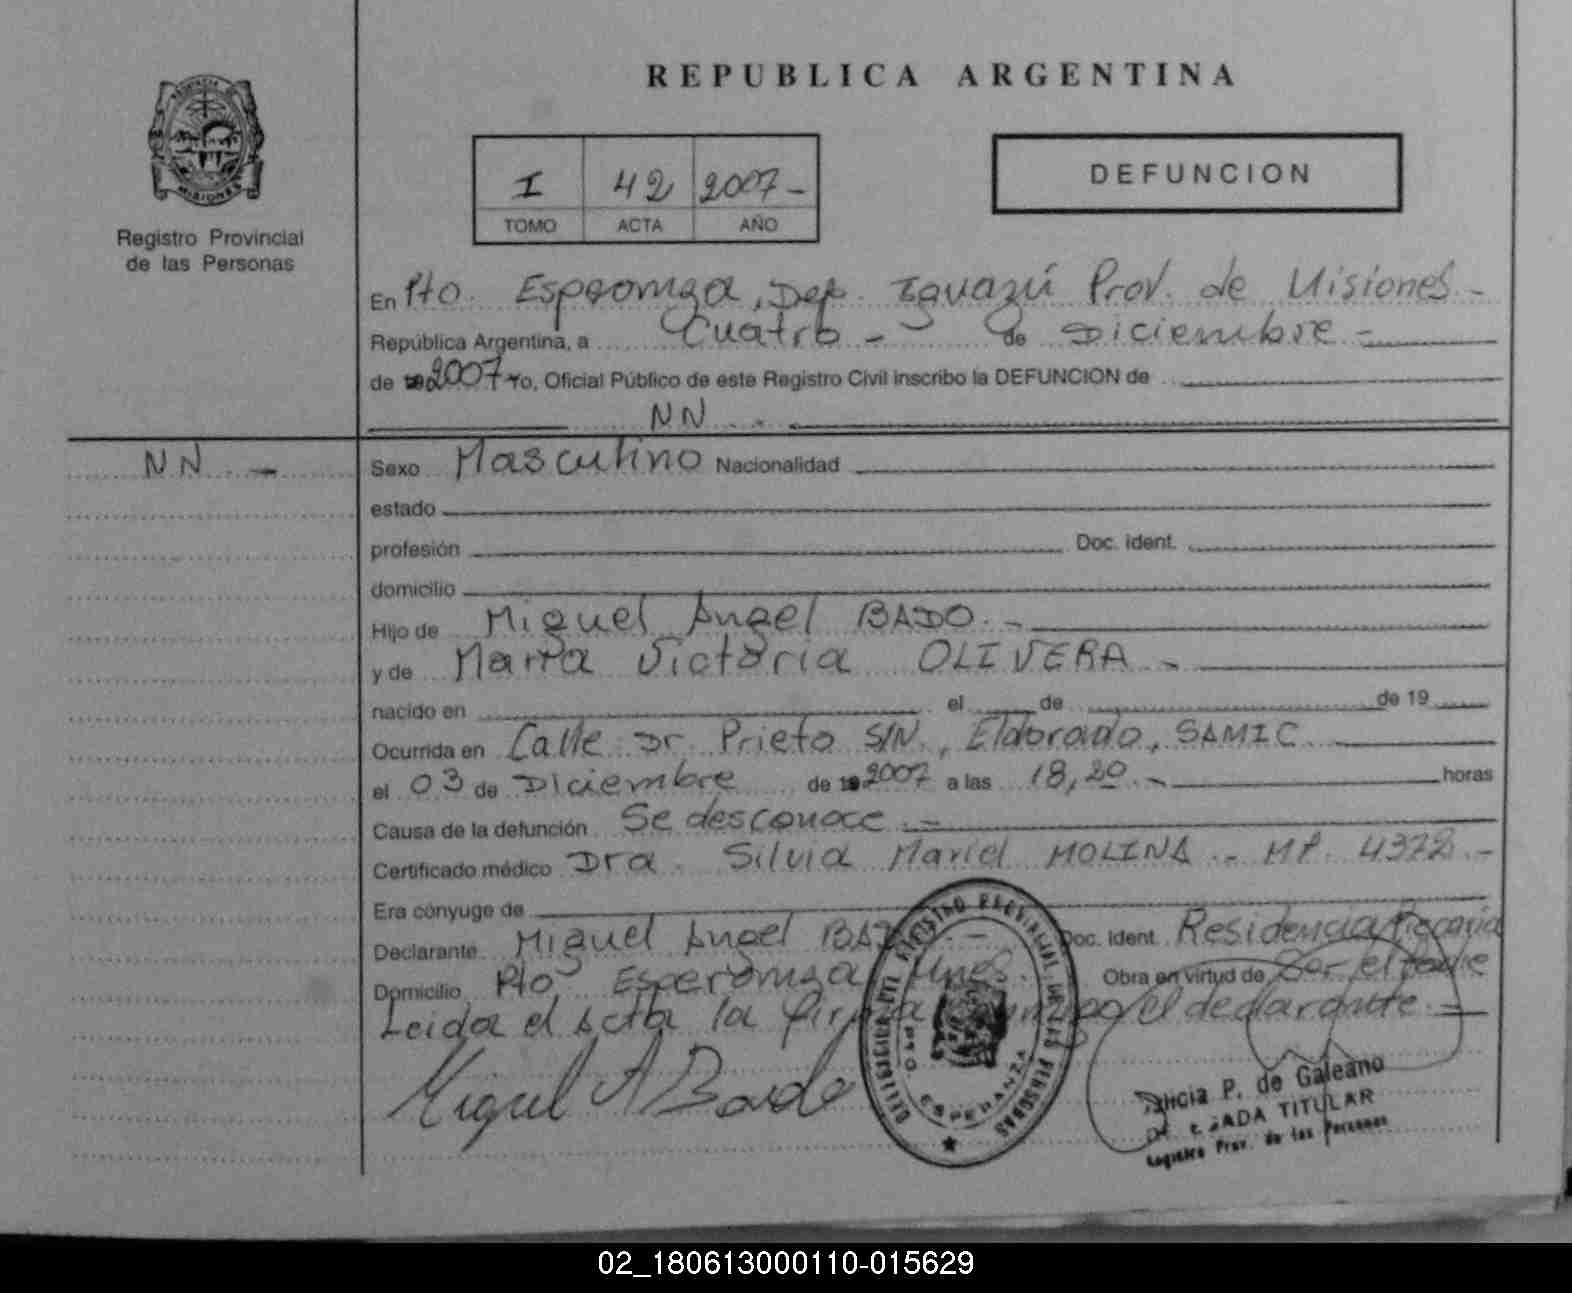 REPUBLICA ARGENTINA
MISIONES
Registro Provincial
de las Personas
I 42 2007-
TOMO ACTA AÑO
DEFUNCION
En Pto. Esperanza, Dep. Iguazú Prov. de Misiones -
República Argentina, a Cuatro - de Diciembre -
de 2007 Yo, Oficial Público de este Registro Civil inscribo la DEFUNCION de
NN
NN -
Sexo Masculino Nacionalidad
estado
profesión Doc. ident.
domicilio
Hijo de Miguel Angel BADO. -
y de María Victoria OLIVERA -
nacido en el de de 19
Ocurrida en Calle Dr. Prieto S/N., Eldorado, SAMIC
el 03 de Diciembre de 2007 a las 18,20 - horas
Causa de la defunción Se desconoce -
Certificado médico Dra. Silvia Mariel MOLINA - MP. 4372 -
Era cónyuge de
Declarante Miguel Angel BADO - Doc. Ident. Residencia Precaria
Domicilio Pto Esperanza Mnes. Obra en virtud de Ser el padre
Leida el Acta la firma conmigo el declarante. -
Miguel A Bado
DELEGACION DEL REGISTRO PROVINCIAL DE LAS PERSONAS
PTO. ESPERANZA
Alicia P. de Galeano
DELEGADA TITULAR
Registro Prov. de las Personas
02_180613000110-015629